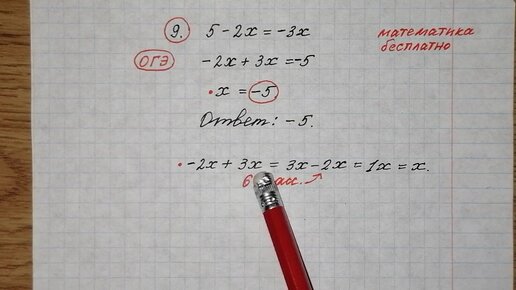 9. 5 - 2x = -3x
математика бесплатно
ОГЭ
-2x + 3x = -5
x = -5
Ответ: -5.
-2x + 3x = 3x - 2x = 1x = x.
6